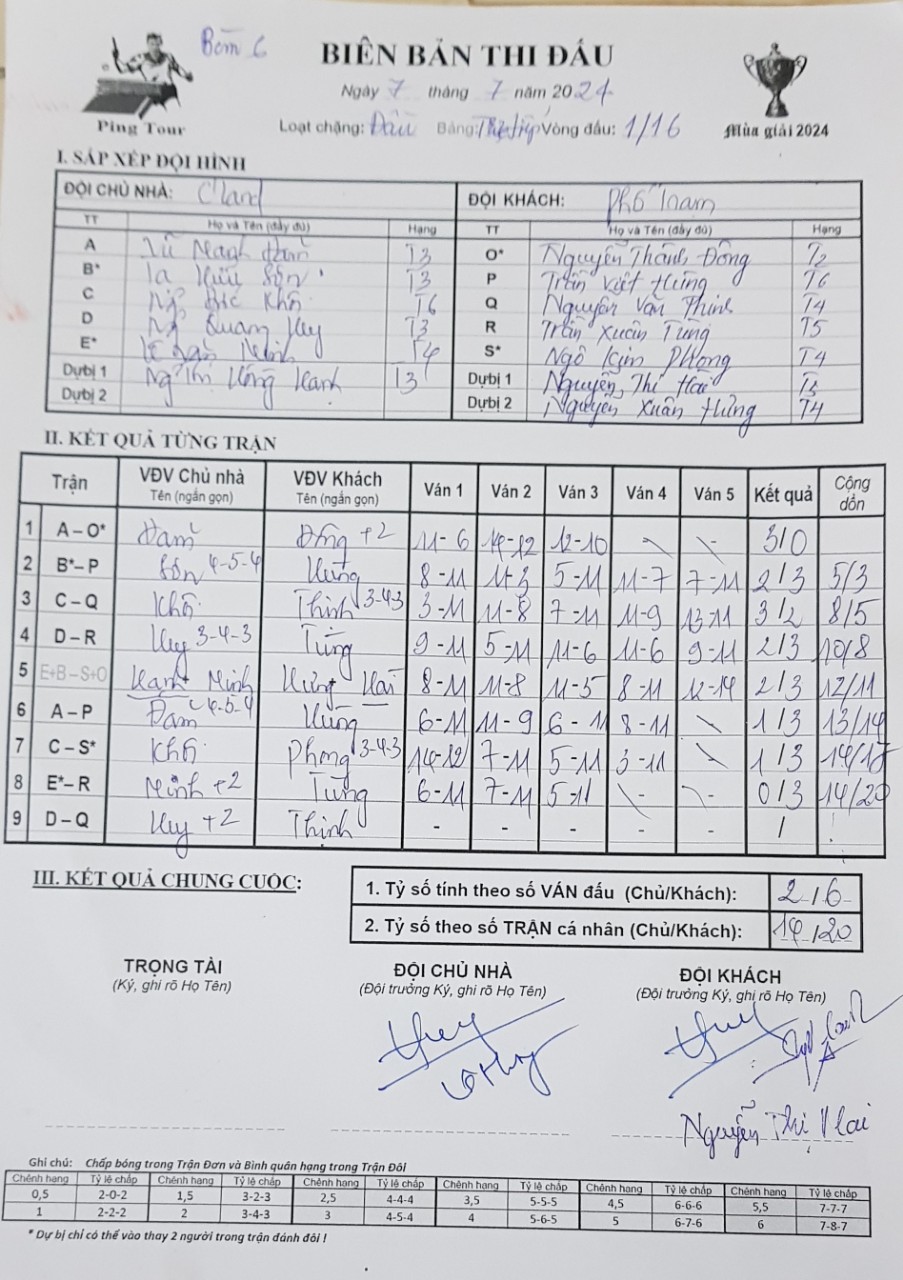 Bàn 6
BIÊN BẢN THI ĐẤU
Ngày 7 tháng 7 năm 2024
Ping Tour
Loạt chặng: Đầu Bảng: Vòng đấu: 1/16
Mùa giải 2024
I. SẮP XẾP ĐỘI HÌNH
ĐỘI CHỦ NHÀ: Cland ĐỘI KHÁCH: Phố Nam
TT Họ và Tên (đầy đủ) Hạng TT Họ và Tên (đầy đủ) Hạng
A Vũ Mạnh Đam T3 O* Nguyễn Thành Đồng T2
B* Tạ Hữu Sơn T3 P Trần Việt Hưng T6
C Ng Khôi T6 Q Nguyễn Văn Thinh T4
D Ng Quang Huy T3 R Trần Xuân Tùng T5
E* Lê Minh T4 S* Ngô Kim Phong T4
Dự bị 1 Ng Thị Hồng Hạnh T3 Dự bị 1 Nguyễn Thị Hải T3
Dự bị 2 Dự bị 2 Nguyễn Xuân Hưng T4
II. KẾT QUẢ TỪNG TRẬN
Trận VĐV Chủ nhà Tên (ngắn gọn) VĐV Khách Tên (ngắn gọn) Ván 1 Ván 2 Ván 3 Ván 4 Ván 5 Kết quả Cộng dồn
1 A – O* Đam Đồng +2 11-6 14-12 12-10 \ \- 3/0
2 B* – P Sơn 4-5-4 Hưng 8-11 11-3 5-11 11-7 7-11 2/3 5/3
3 C – Q Khôi Thinh 3-4-3 3-11 11-8 7-11 11-9 13-11 3/2 8/5
4 D – R Huy 3-4-3 Tùng 9-11 5-11 11-6 11-6 9-11 2/3 10/8
5 E+B – S+O Hạnh Minh Hưng Hải 8-11 11-8 11-5 8-11 12-14 2/3 12/11
6 A – P Đam 4-5-4 Hưng 6-11 11-9 6-11 8-11 \ 1/3 13/14
7 C – S* Khôi Phong 3-4-3 14-12 7-11 5-11 3-11 \ 1/3 14/17
8 E* – R Minh +2 Tùng 6-11 7-11 5-11 \- \- 0/3 14/20
9 D – Q Huy +2 Thinh - - - - - /
III. KẾT QUẢ CHUNG CUỘC:
1. Tỷ số tính theo số VÁN đấu (Chủ/Khách): 2/6
2. Tỷ số theo số TRẬN cá nhân (Chủ/Khách): 14/20
TRỌNG TÀI ĐỘI CHỦ NHÀ ĐỘI KHÁCH
(Ký, ghi rõ Họ Tên) (Đội trưởng Ký, ghi rõ Họ Tên) (Đội trưởng Ký, ghi rõ Họ Tên)
Huy Huy
Nguyễn Thị Hai
Ghi chú: Chấp bóng trong Trận Đơn và Bình quân hạng trong Trận Đôi
Chênh hạng Tỷ lệ chấp Chênh hạng Tỷ lệ chấp Chênh hạng Tỷ lệ chấp Chênh hạng Tỷ lệ chấp Chênh hạng Tỷ lệ chấp Chênh hạng Tỷ lệ chấp
0,5 2-0-2 1,5 3-2-3 2,5 4-4-4 3,5 5-5-5 4,5 6-6-6 5,5 7-7-7
1 2-2-2 2 3-4-3 3 4-5-4 4 5-6-5 5 6-7-6 6 7-8-7
* Dự bị chỉ có thể vào thay 2 người trong trận đánh đôi !